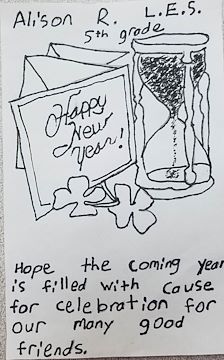 Alison R. L.E.S.
5th grade
Happy
New
Year!
Hope the coming year
is filled with cause
for celebration for
our many good
friends.